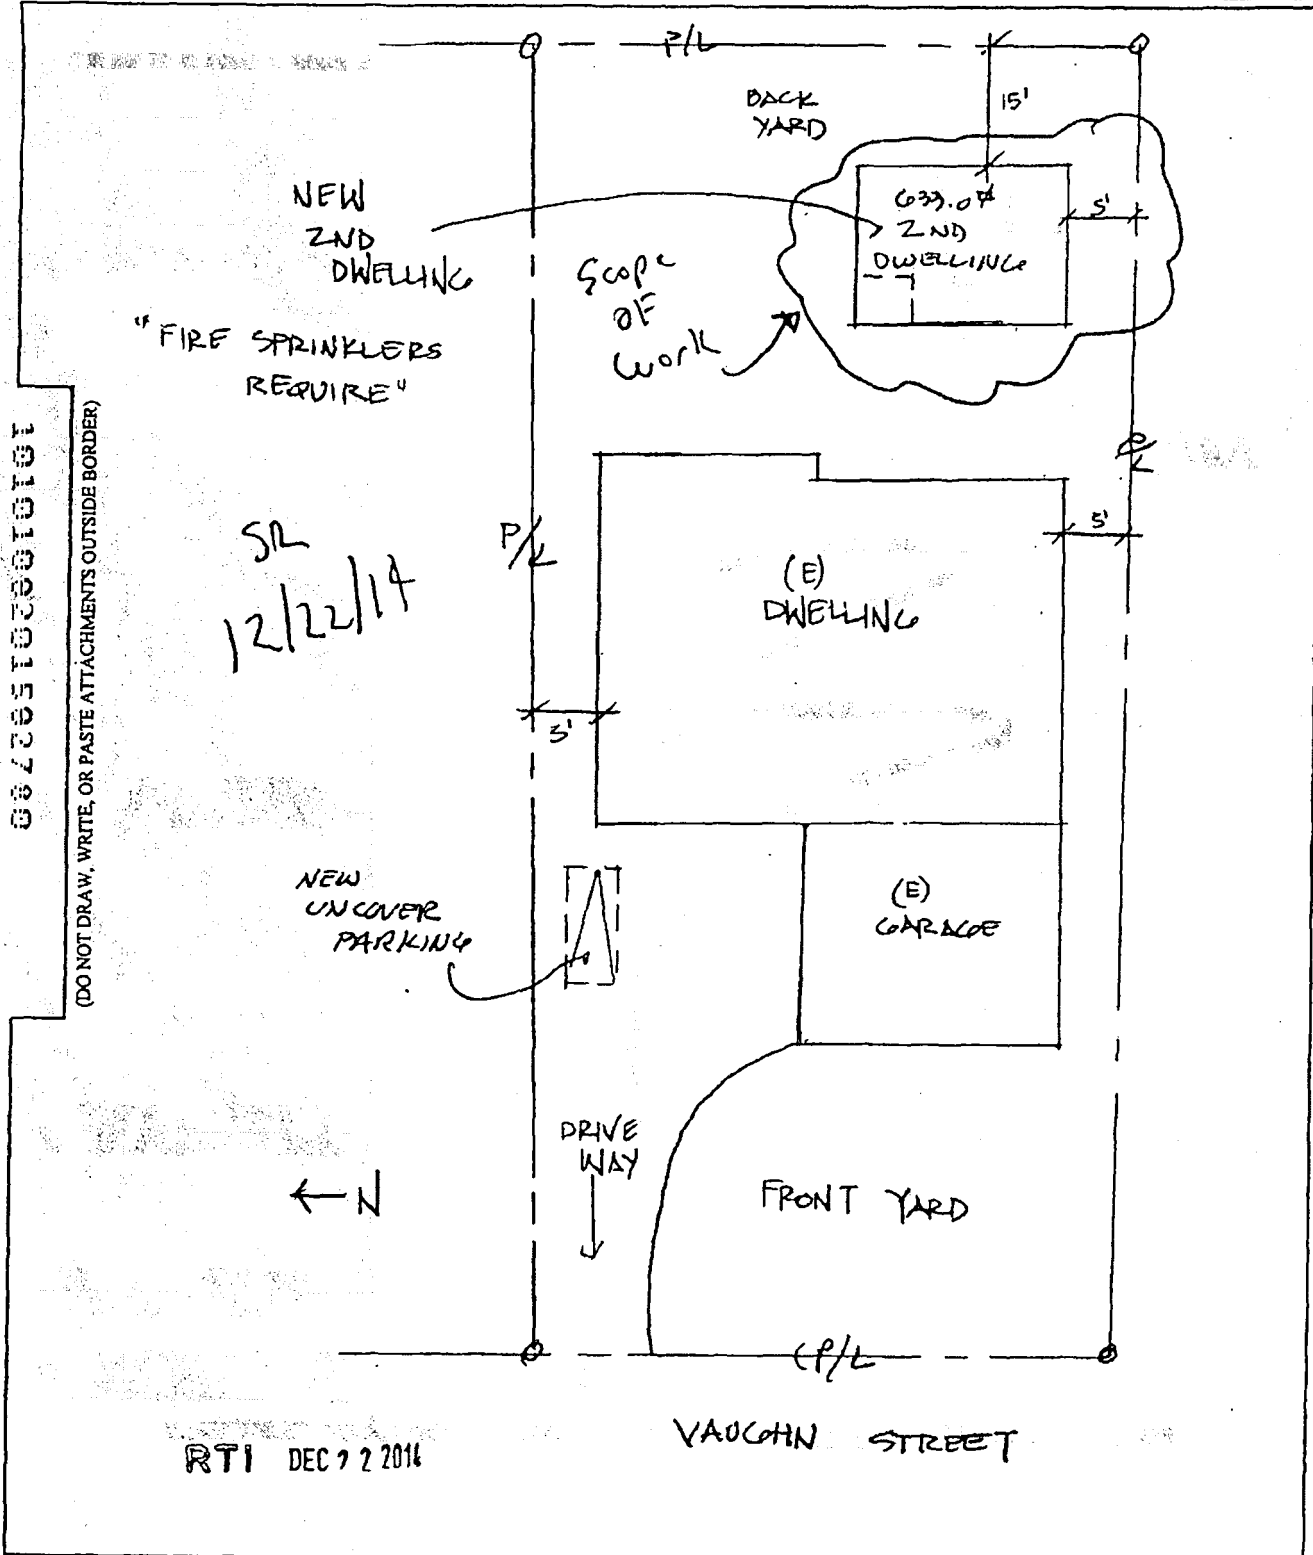 P/L
BACK
YARD
15'
NEW
2ND
DWELLING
633.0#
2ND
DWELLING
5'
Scope
OF
Work
"FIRE SPRINKLERS
REQUIRE"
(DO NOT DRAW, WRITE, OR PASTE ATTACHMENTS OUTSIDE BORDER)
P/L
SR
12/22/14
P/L
5'
(E)
DWELLING
5'
NEW
UNCOVER
PARKING
(E)
GARAGE
DRIVE
WAY
← N
FRONT YARD
P/L
VAUGHN STREET
RTI DEC 22 2014